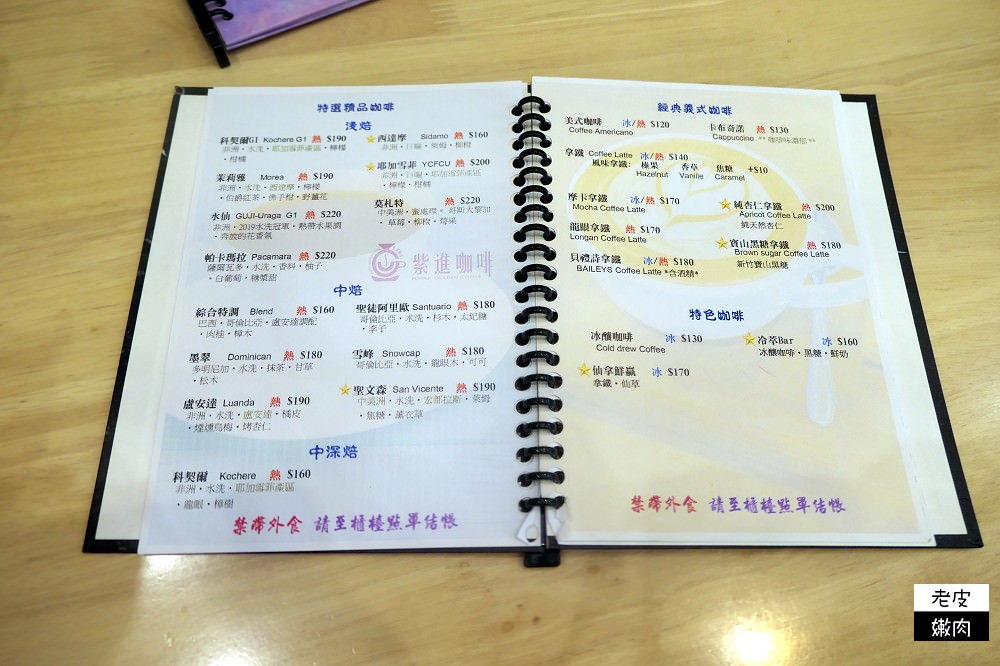 特選精品咖啡
淺焙
科契爾G1 Kochere G1 熱 $190
非洲・水洗・耶加雪菲產區・檸檬
・柑橘
茉莉雅 Morea 熱 $190
非洲・水洗・西達摩・檸檬
・伯爵紅茶・佛手柑・野薑花
水仙 GUJI-Uraga G1 熱 $220
非洲・2019水洗冠軍・熱帶水果調
・奔放的花香氣
帕卡瑪拉 Pacamara 熱 $220
薩爾瓦多・水洗・香料・柚子
・白葡萄・糖漿甜
★西達摩 Sidamo 熱 $160
非洲・日曬・萊姆・柳橙
★耶加雪菲 YCFCU 熱 $200
非洲・日曬・耶加雪菲產區
・檸檬・柑橘
莫札特 熱 $220
中美洲・蜜處理・哥斯大黎加
・草莓・柳橙・莓果
紫進咖啡
中焙
綜合特調 Blend 熱 $160
巴西・哥倫比亞・盧安達調配
・肉桂・樟木
墨翠 Dominican 熱 $180
多明尼加・水洗・抹茶・甘草
・松木
盧安達 Luanda 熱 $190
非洲・水洗・盧安達・橘皮
・煙燻烏梅・烤杏仁
聖徒阿里歐 Santuario 熱 $180
哥倫比亞・水洗・杉木・太妃糖
・李子
雪峰 Snowcap 熱 $180
哥倫比亞・水洗・龍眼木・可可
★聖文森 San Vicente 熱 $190
中美洲・水洗・宏都拉斯・萊姆
・焦糖・薰衣草
中深焙
科契爾 Kochere 熱 $160
非洲・水洗・耶加雪菲產區
・龍眼・樟樹
禁帶外食 請至櫃檯點單結帳
經典義式咖啡
美式咖啡 冰/熱 $120
Coffee Americano
卡布奇諾 熱 $130
Cappuccino ** 咖啡味濃郁 **
拿鐵 Coffee Latte 冰/熱 $140
風味拿鐵: 榛果 香草 焦糖 +$10
Hazelnut Vanifie Caramel
摩卡拿鐵 冰/熱 $170
Mocha Coffee Latte
龍眼拿鐵 熱 $170
Longan Coffee Latte
貝禮詩拿鐵 冰/熱 $180
BAILEYS Coffee Latte *含酒精*
★純杏仁拿鐵 熱 $200
Apricot Coffee Latte
純天然杏仁
★寶山黑糖拿鐵 熱 $180
Brown sugar Coffee Latte
新竹寶山黑糖
特色咖啡
冰釀咖啡 冰 $130
Cold drew Coffee
★冷萃Bar 冰 $160
冰釀咖啡・黑糖・鮮奶
★仙拿鮮贏 冰 $170
拿鐵・仙草
禁帶外食 請至櫃檯點單結帳
老皮
嫩肉